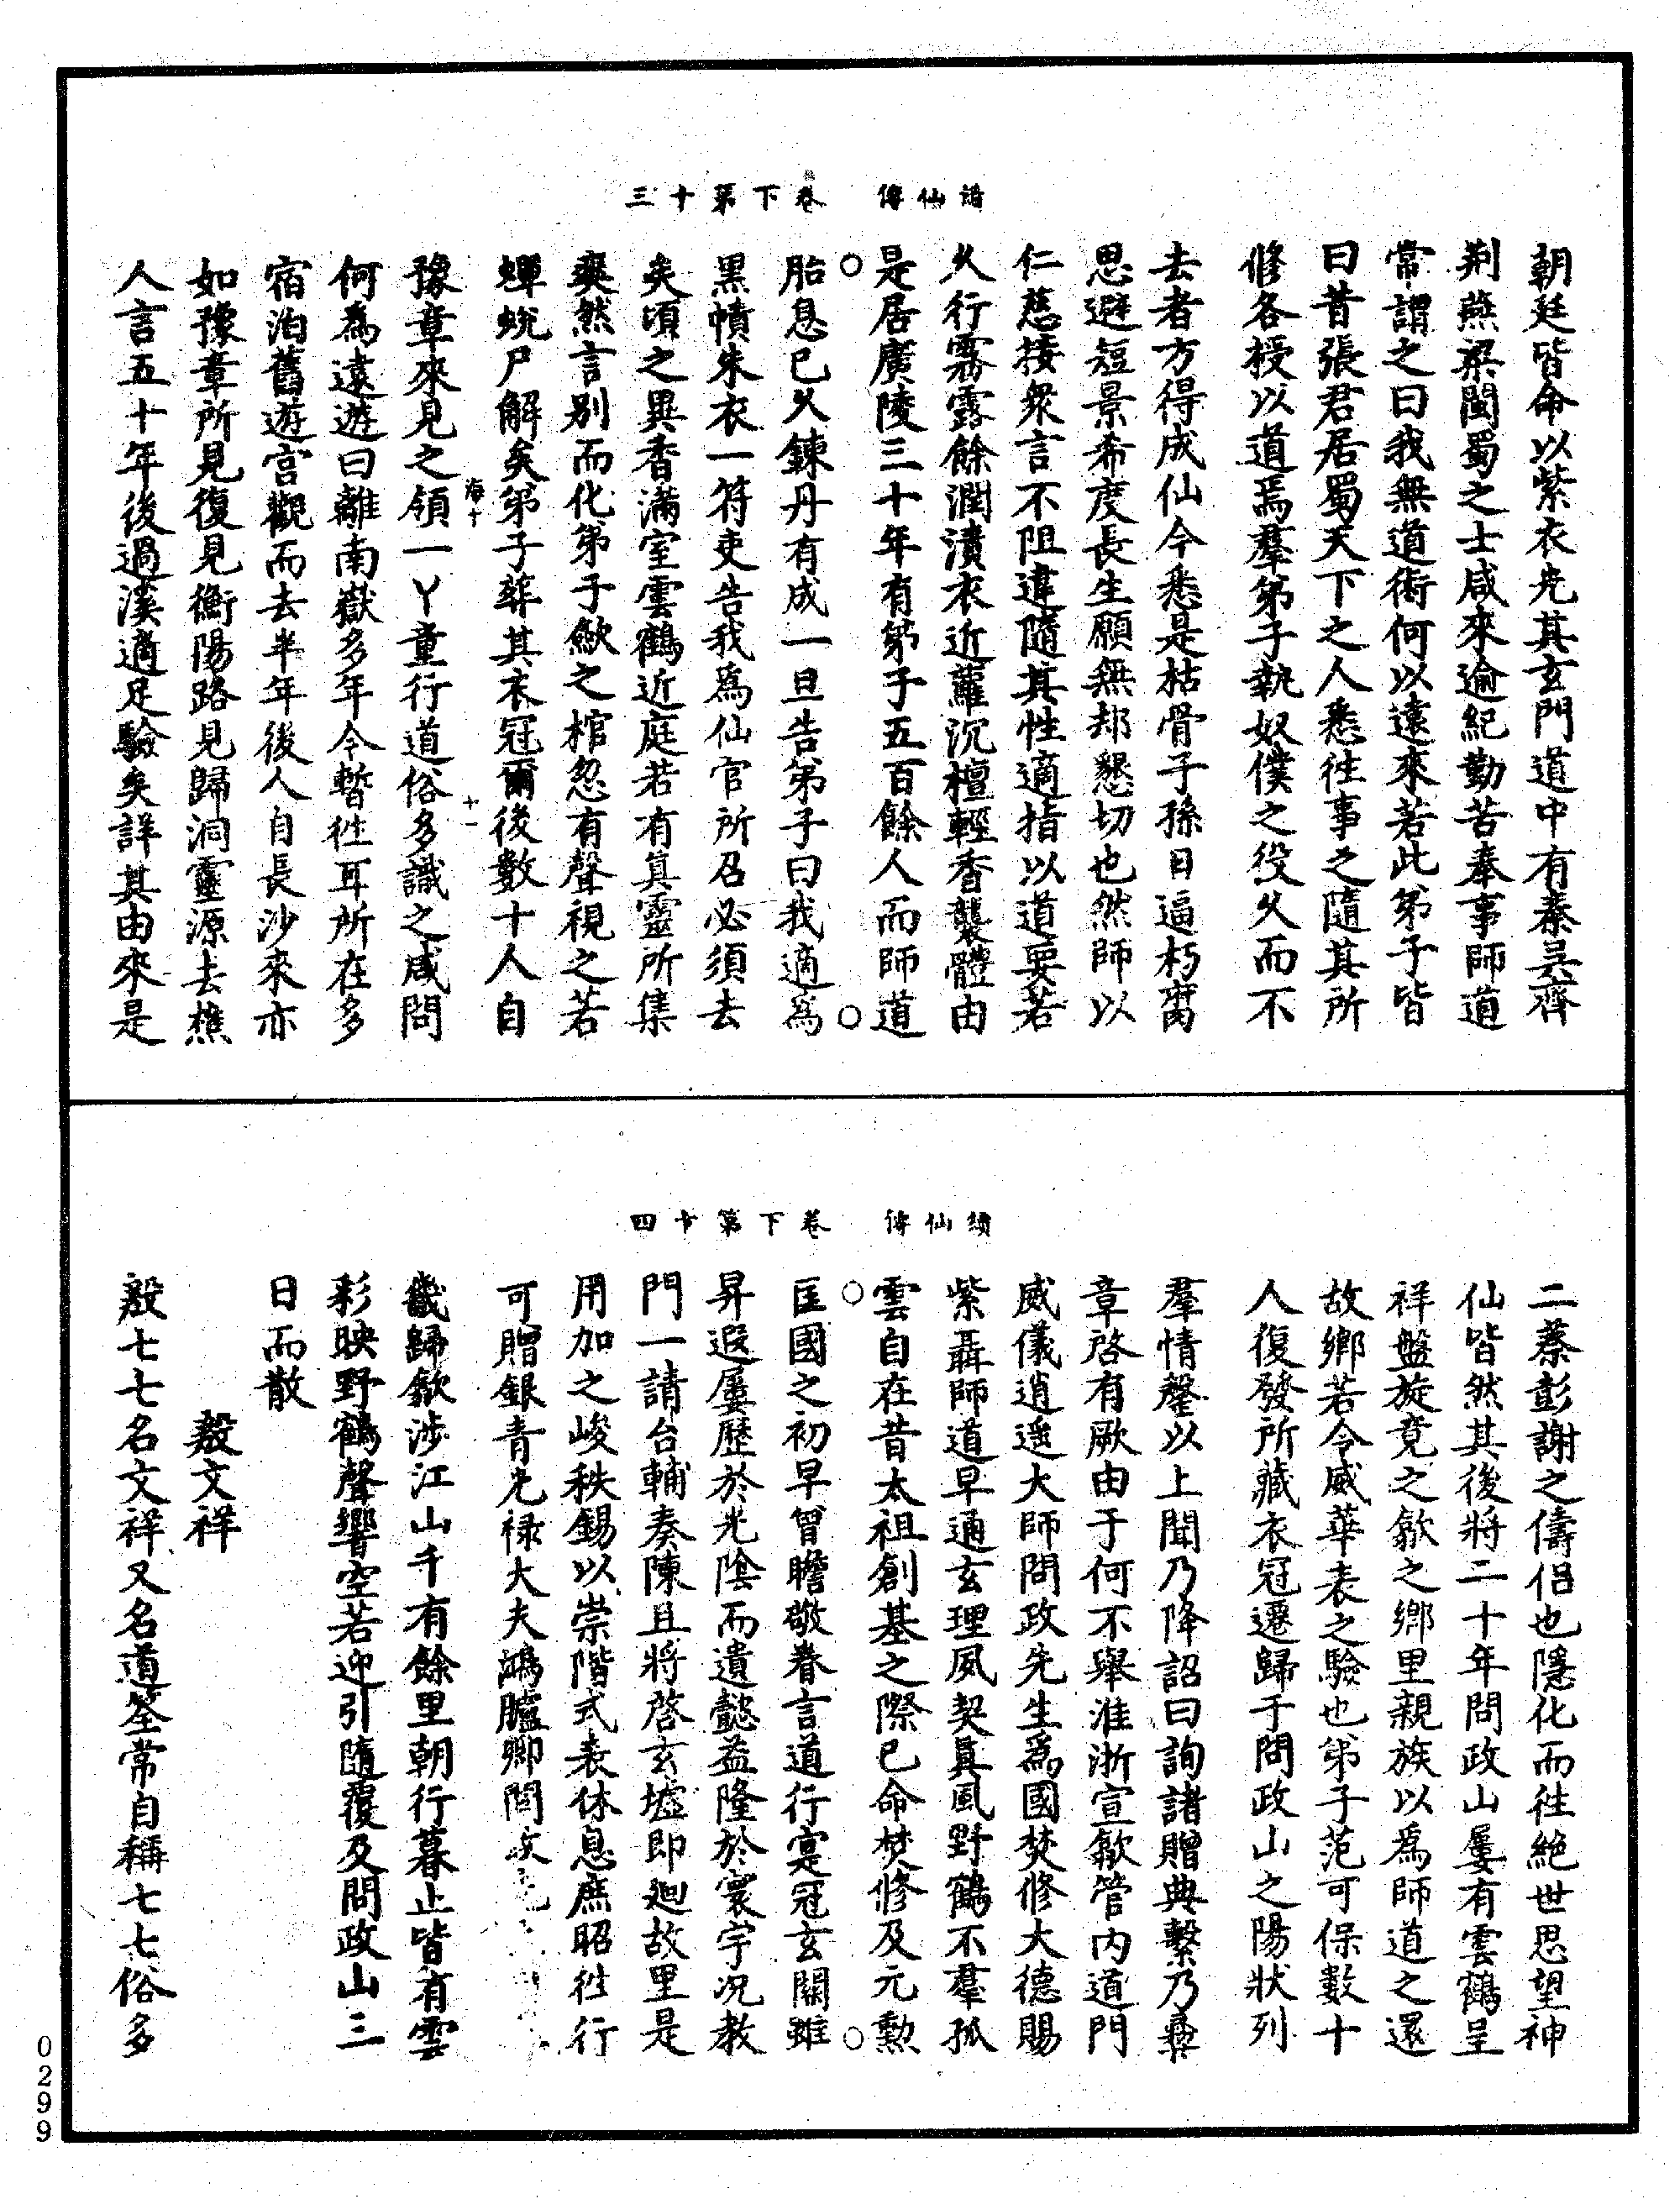 諸仙傳　卷下第十三
朝廷皆命以紫衣光其玄門道中有秦吳齊
荆燕梁閩蜀之士咸來逾紀勤苦奉事師道
常謂之曰我無道術何以遠來若此弟子皆
曰昔張君居蜀天下之人悉往事之隨其所
修各授以道焉羣弟子執奴僕之役久而不
去者方得成仙今悉是枯骨子孫日逼朽腐
思避短景希度長生願無却懇切也然師以
仁慈接衆言不阻違隨其性適指以道要若
久行霧露餘潤漬衣近蘿沉檀輕香襲體由
是居廣陵三十年有弟子五百餘人而師道
胎息已久鍊丹有成一旦告弟子曰我適爲
黑幘朱衣一符吏告我爲仙官所召必須去
矣頃之異香滿室雲鶴近庭若有真靈所集
爽然言別而化弟子斂之棺忽有聲視之若
蟬蛻尸解矣弟子葬其衣冠爾後數十人自
海十　十一
豫章來見之領一丫童行道俗多識之咸問
何爲遠遊曰離南嶽多年今暫往耳所在多
宿泊舊遊宮觀而去半年後人自長沙來亦
如豫章所見復見衡陽路見歸洞靈源去樵
人言五十年後過溪適足驗矣詳其由來是
續仙傳　卷下第十四
二蔡彭謝之儔侶也隱化而往絕世思望神
仙皆然其後將二十年問政山屢有雲鶴呈
祥盤旋竟之歙之鄉里親族以爲師道之還
故鄉若令威華表之驗也弟子范可保數十
人復發所藏衣冠遷歸于問政山之陽狀列
羣情罄以上聞乃降詔曰詢諸贈典繫乃彝
章啓有厥由于何不舉淮浙宣歙管內道門
威儀逍遥大師問政先生爲國焚修大德賜
紫聶師道早通玄理夙契真風野鶴不羣孤
雲自在昔太祖創基之際已命焚修及元勳
匡國之初早曾瞻敬眷言道行寔冠玄關雖
昇遐屢歷於光陰而遺懿益隆於寰宇况教
門一請台輔奏陳且將啓玄墟即迴故里是
用加之峻秩錫以崇階式表休息庶昭往行
可贈銀青光禄大夫鴻臚卿問政
歲歸歙涉江山千有餘里朝行暮止皆有雲
彩映野鶴聲響空若迎引隨覆及問政山三
日而散
殷文祥
殷七七名文祥又名道筌常自稱七七俗多
0299